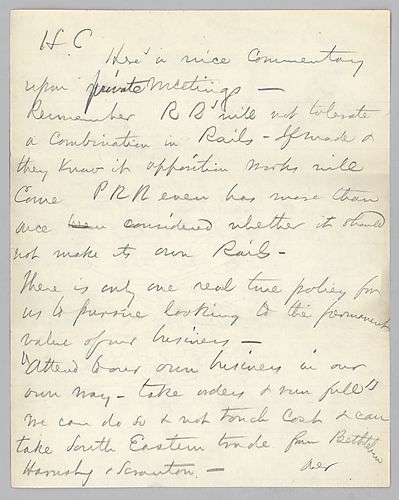 H. C
Here's a nice Commentary
upon private Meetings —
Remember R Rs' will not tolerate
a Combination in Rails - If made &
they Know it opposition works will
Come PRR even has more than
once been considered whether it should
not make its own Rails -
There is only one real true policy for
us to pursue looking to the permanent
value of our business —
"Attend to our own business in our
own way - take orders & run full"
We can do so & not touch Cost & can
take South Eastern trade from Bethlehem
& Scranton — over